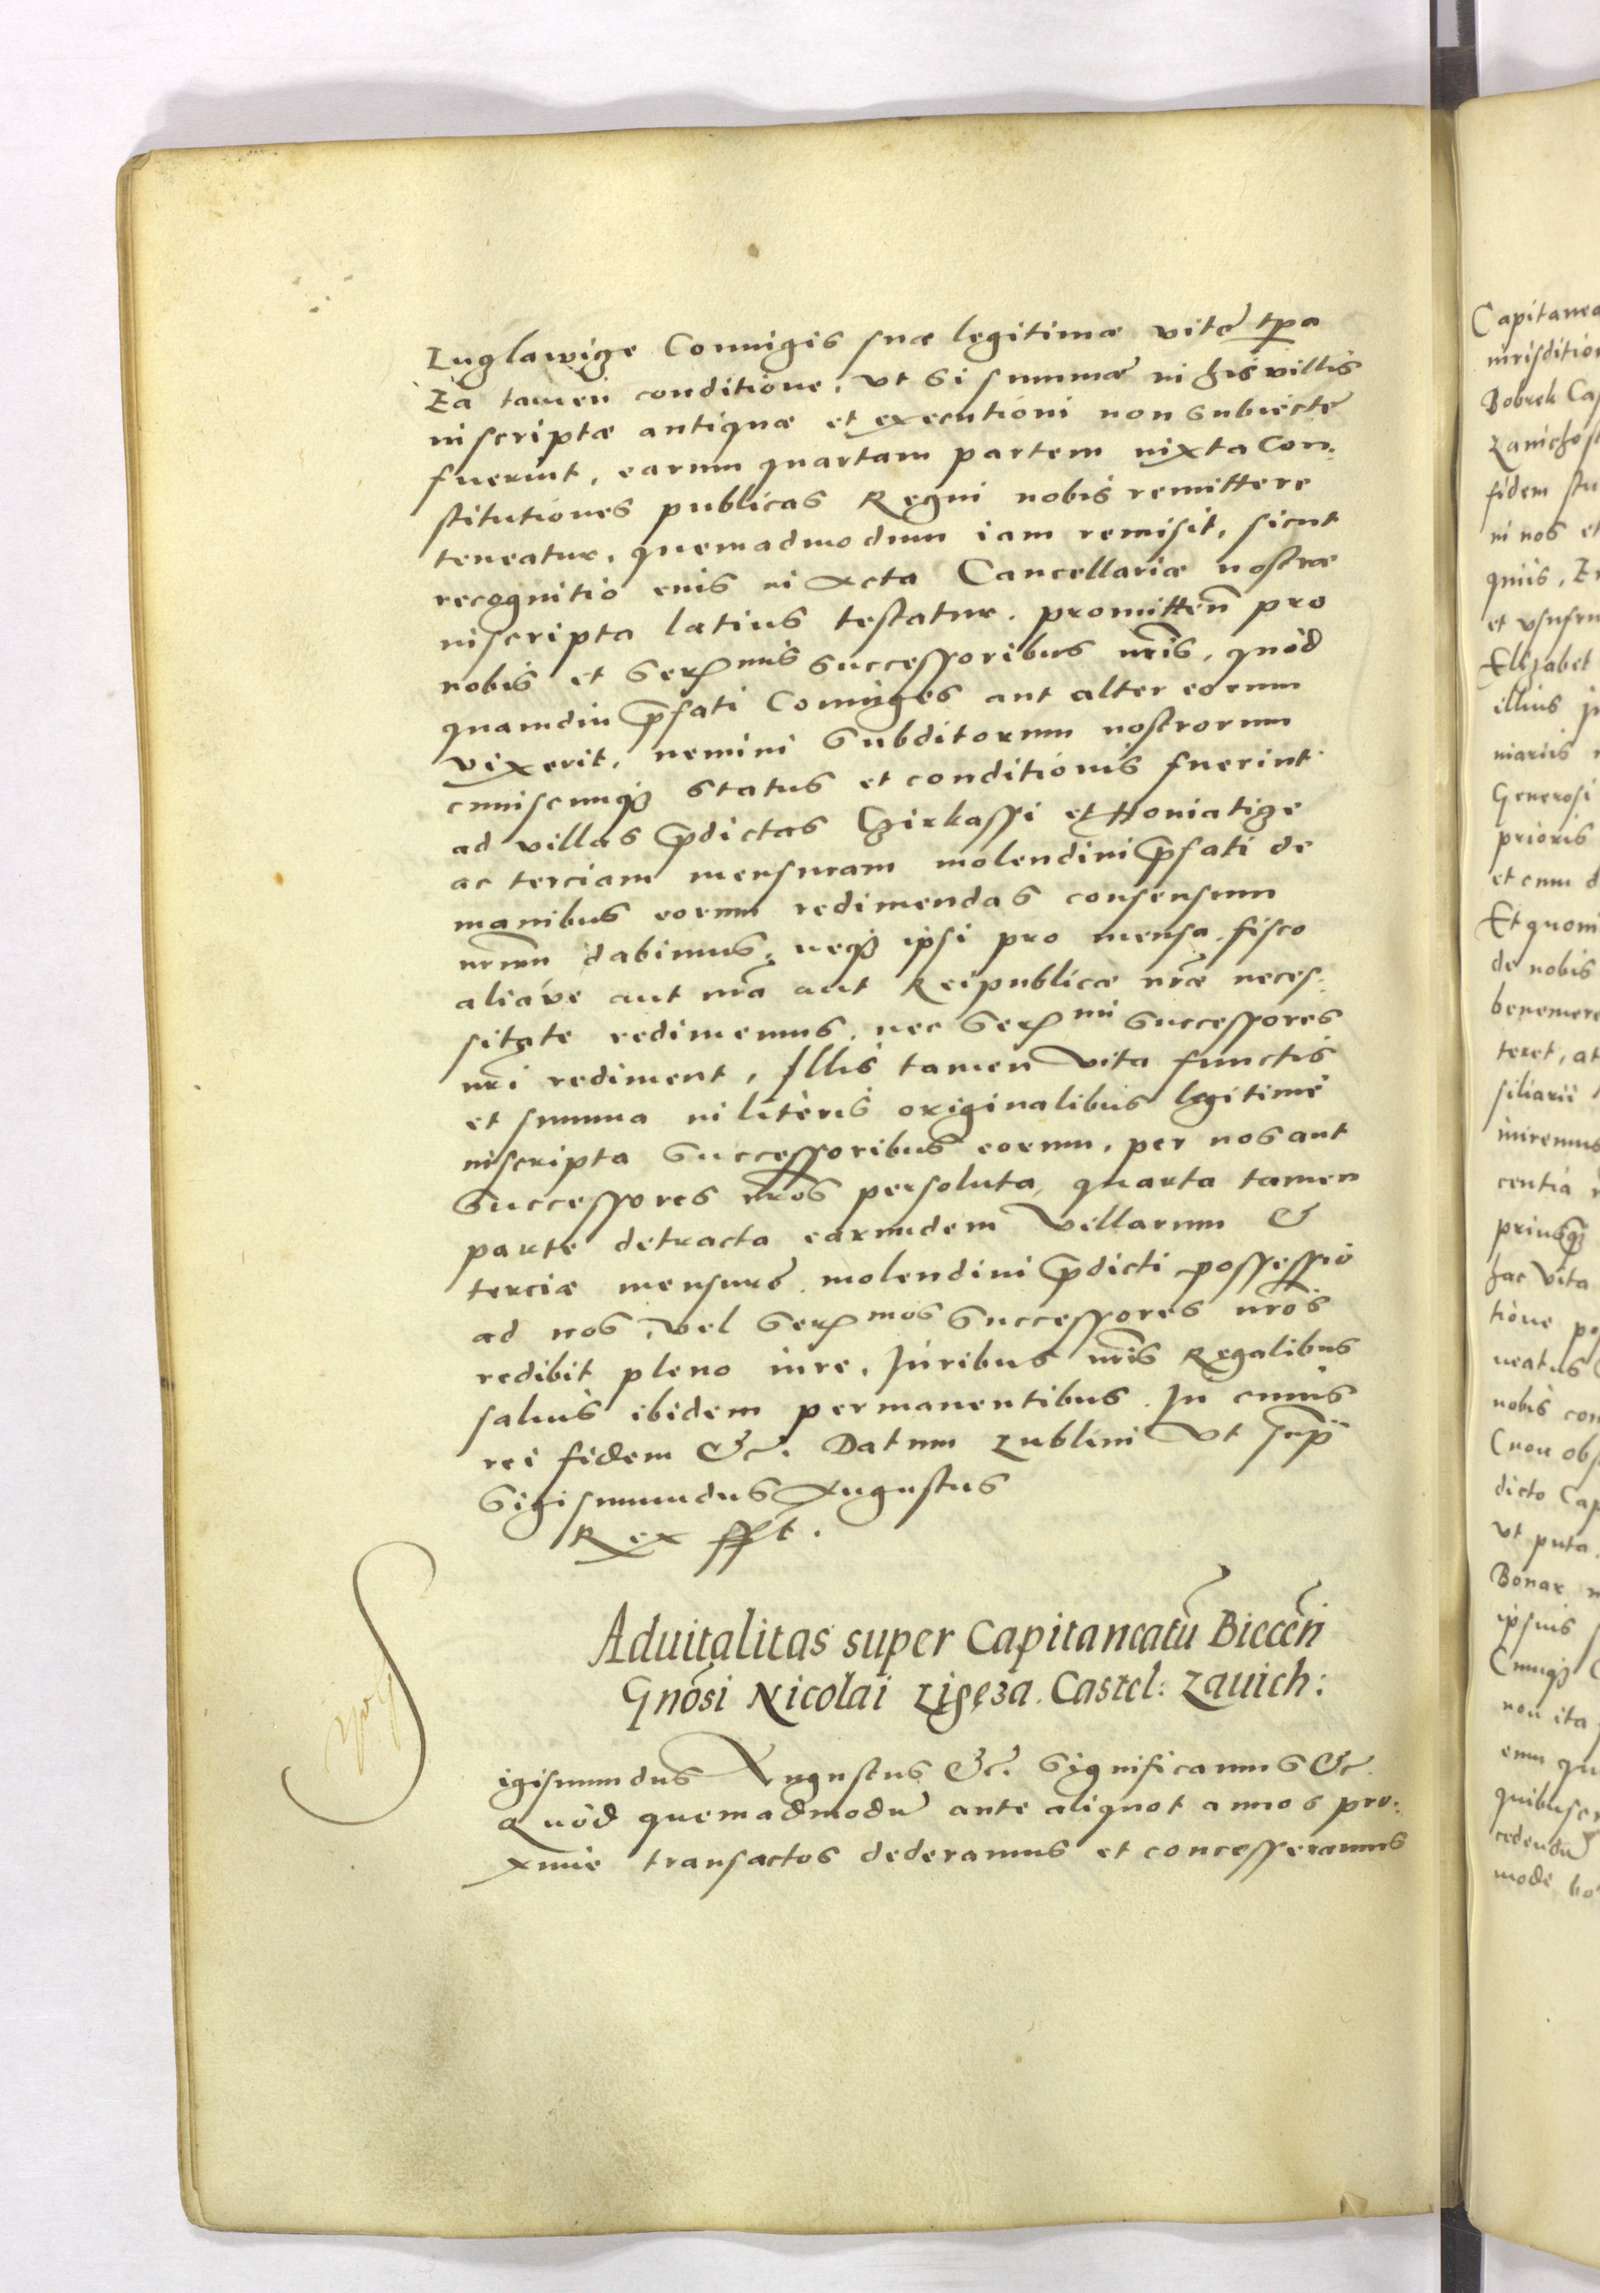 Zuglawicze Coniugis suæ legitimæ vitę tpa
Ea tamen conditione, vt si summæ in his villis
inscriptæ antiquæ et executioni non subiectę
fuerint, earum quartam partem iuxta Con:
stitutiones publicas Regni nobis remittere
teneatur, quemadmodum iam remisit, sicut
recognitio eius in Acta Cancellariæ nostræ
inscripta latius testatur. promitteñ pro
nobis et Serẽmis Successoribus nrĩs, quòd
quamdiu p̃fati Coniuges aut alter eorum
vixerit, nemini Subditorum nostrorum
cuiuscunq̃ status et conditionis fuerint
ad villas p̃dictas Czirkassi et Honiaticze
ac terciam mensuram molendini p̃fati de
manibus eorum redimendas consensum
nrum dabimus, neq̃ ipsi pro mensa, fisco
aliáve aut nrã aut Reipublicæ nrãe neces:
sitate redimemus, nec Serẽmi Successores
nrĩ rediment, Illis tamen vita functis
et summa in literis originalibus legitimè
inscripta Successoribus eorum, per nos aut
Successores nrõs persoluta, quarta tamen
parte detracta earundem villarum &
terciæ mensurę molendini p̃dicti possessio
ad nos, vel Serẽmos Successores nrõs
redibit pleno iure, Iuribus nrĩs Regalibus
saluis ibidem permanentibus. In cuius
rei fidem &c. Datum Lublini vt sup̃
Sigismundus Augustus
Rex sspt.
Aduitalitas super Capitaneatũ Biecceñ
Gnõsi Nicolai Ligęza. Castel: Zauich:
S
igismundus Augustus &c. Significamus &c.
Quòd quemadmodũ ante aliquot annos pro:
xime transactos dederamus et concesseramus
Capitanea
iurisdition
Bobrek Cas
Zauichost
fidem stu
in nos et
quiis, Er
et vsufru
Elizabet
illius
Generosi
prioris
et cum d
Et quoni
de nobis
benemere
teret, at
siliarii
centia
hac vita
tione pos
neatus
nobis con
dicto Cap
vt puta
Bonar
ipsius
non ita